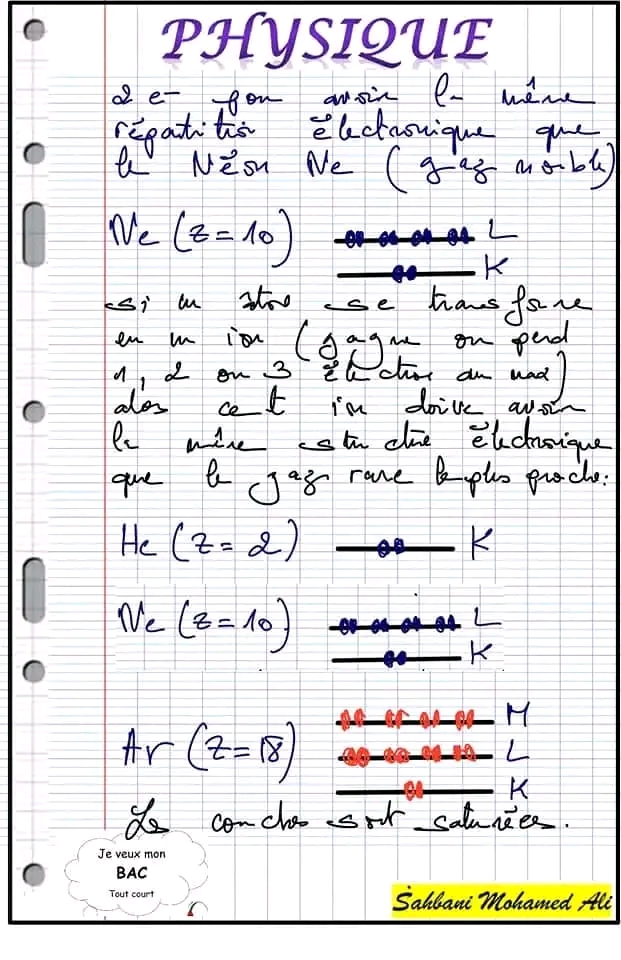 PHYSIQUE
2 e- pour avoir la même
répartition électronique que
le Néon Ne (gaz noible)
Ne (Z=10) L
K
si un atome se transforme
en un ion (gagne ou perd
1, 2 ou 3 électrons au max)
alors cet ion doive avoir
la même structure électronique
que le gaz rare le plus proche:
He (Z=2) K
Ne (Z=10) L
K
M
Ar (Z=18) L
K
Les couches sont saturées.
Je veux mon
BAC
Tout court
Sahbani Mohamed Ali